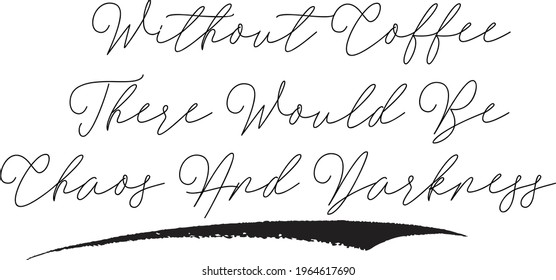 Without Coffee
There Would Be
Chaos And Darkness
shutterstock.com · 1964617690